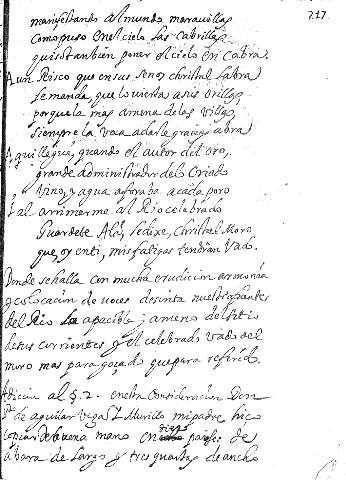 217
manifestando al mundo maravillas
como puso en el cielo las cabrillas
quiso tambien poner el cielo en cabra.
A un Risco que en sus senos christal labra
le manda, que lo vierta a sus orillas
porque la mas amena de las villas,
siempre la vaca a darle gracias abra
Aqui llegué, quando el autor del oro,
grande administrador de lo criado
vino, y agua aforaba a cada poro
I al arrimarme al Rio celebrado
Guardete Alá, le dixe, christal Moro
que, oy en ti, mis fatigas tendran Vado.
Donde se halla con mucha erudicion armonia
y colocacion de voces
del Rio lo apacible; ameno del sitio
de sus corrientes y el celebrado vado del
moro mas para gozado que para referido.
Adicion al §. 2. en esta consideracion Don
de aguilar Vega I Murillo mi padre hico
copiar de buena mano en paises de
a bara de largo y tres quartas de ancho